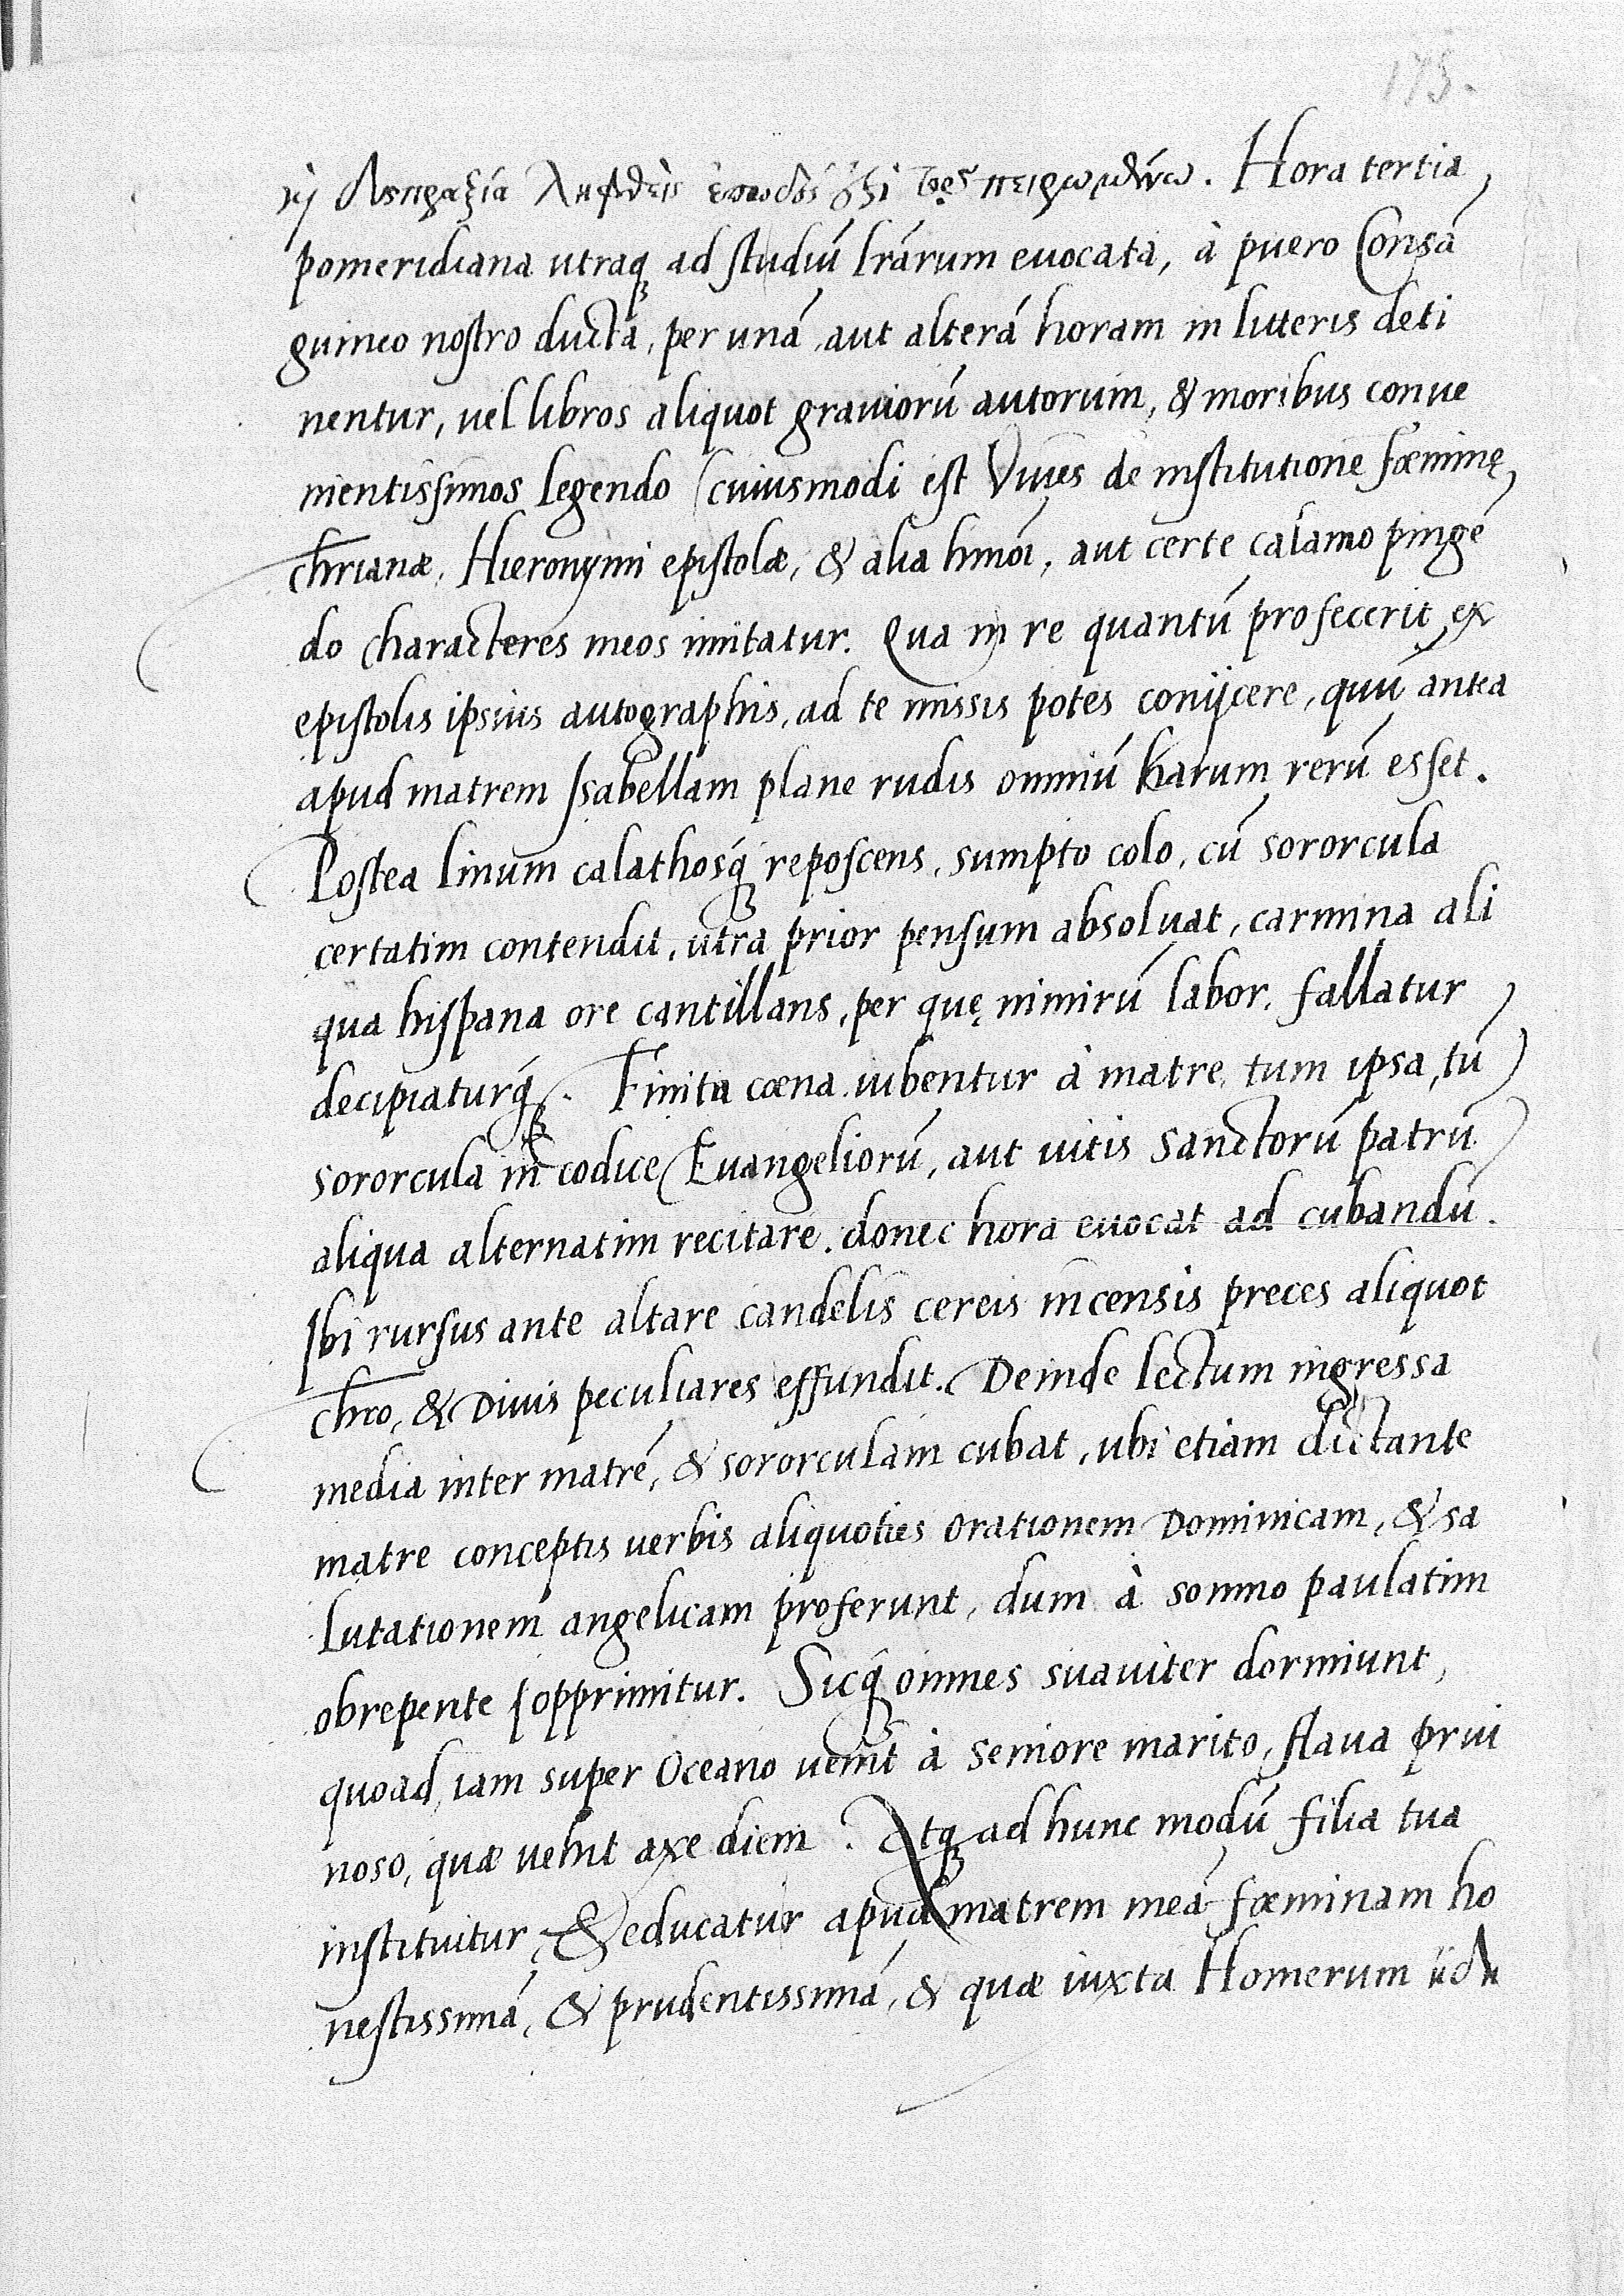 175.
Hora tertia
pomeridiana utraq; ad studiũ lrãrum euocata, à puero Consã
guineo nostro ducta, per unã aut alterã horam in litteris deti
nentur, uel libros aliquot grauiorũ autorum, & moribus conue
nientissimos legendo (cuiusmodi est Viues de institutione fœminę
chrianæ, Hieronymi epistolæ, & alia hmõi, aut certe calamo pingẽ
do characteres meos imitatur. Qua in re quantũ profecerit, ex
epistolis ipsius autographis, ad te missis potes conijcere, quũ antea
apud matrem Isabellam plane rudis omniũ harum rerũ esset.
Postea linum calathosq; reposcens, sumpto colo, cũ sororcula
certatim contendit, utra prior pensum absoluat, carmina ali
qua hispana ore cantillans, per quę nimirũ labor fallatur
decipiaturq;. Finita cœna iubentur à matre, tum ipsa, tũ
sororcula in codice Euangeliorũ, aut uitis Sanctorũ patrũ
aliqua alternatim recitare, donec hora euocat ad cubandũ.
Ibi rursus ante altare candelis cereis incensis preces aliquot
chro, & Diuis peculiares effundit. Deinde lectum ingressa
media inter matrẽ, & sororculam cubat, ubi etiam dictante
matre conceptis uerbis aliquoties Orationem Dominicam, & sa
lutationem angelicam proferunt, dum à somno paulatim
obrepente opprimitur. Sicq; omnes suauiter dormiunt,
quoad iam super Oceano uenit à seniore marito, flaua prui
noso, quæ uehit axe diem. Atq; ad hunc modũ filia tua
instituitur, & educatur apud matrem meã fœminam ho
nestissimã, & prudentissimã, & quæ iuxta Homerum